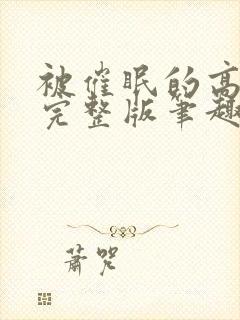 被催眠的高
完整版笔趣
萧咒